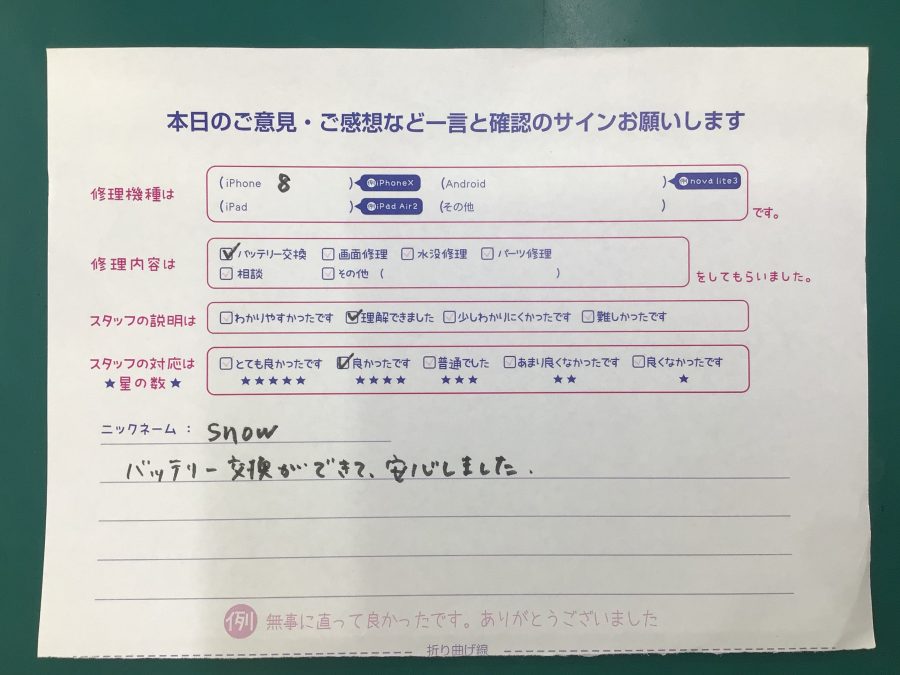 本日のご意見・ご感想など一言と確認のサインお願いします
修理機種は
(iPhone 8 ) 例iPhoneX (Android ) 例nova lite3
(iPad ) 例iPad Air2 (その他 ) です。
修理内容は
☑バッテリー交換 □画面修理 □水没修理 □パーツ修理
□相談 □その他 ( ) をしてもらいました。
スタッフの説明は □わかりやすかったです ☑理解できました □少しわかりにくかったです □難しかったです
スタッフの対応は □とても良かったです ☑良かったです □普通でした □あまり良くなかったです □良くなかったです
★星の数★ ★★★★★ ★★★★ ★★★ ★★ ★
ニックネーム： snow
バッテリー交換ができて、安心しました.
例 無事に直って良かったです。ありがとうございました
折り曲げ線